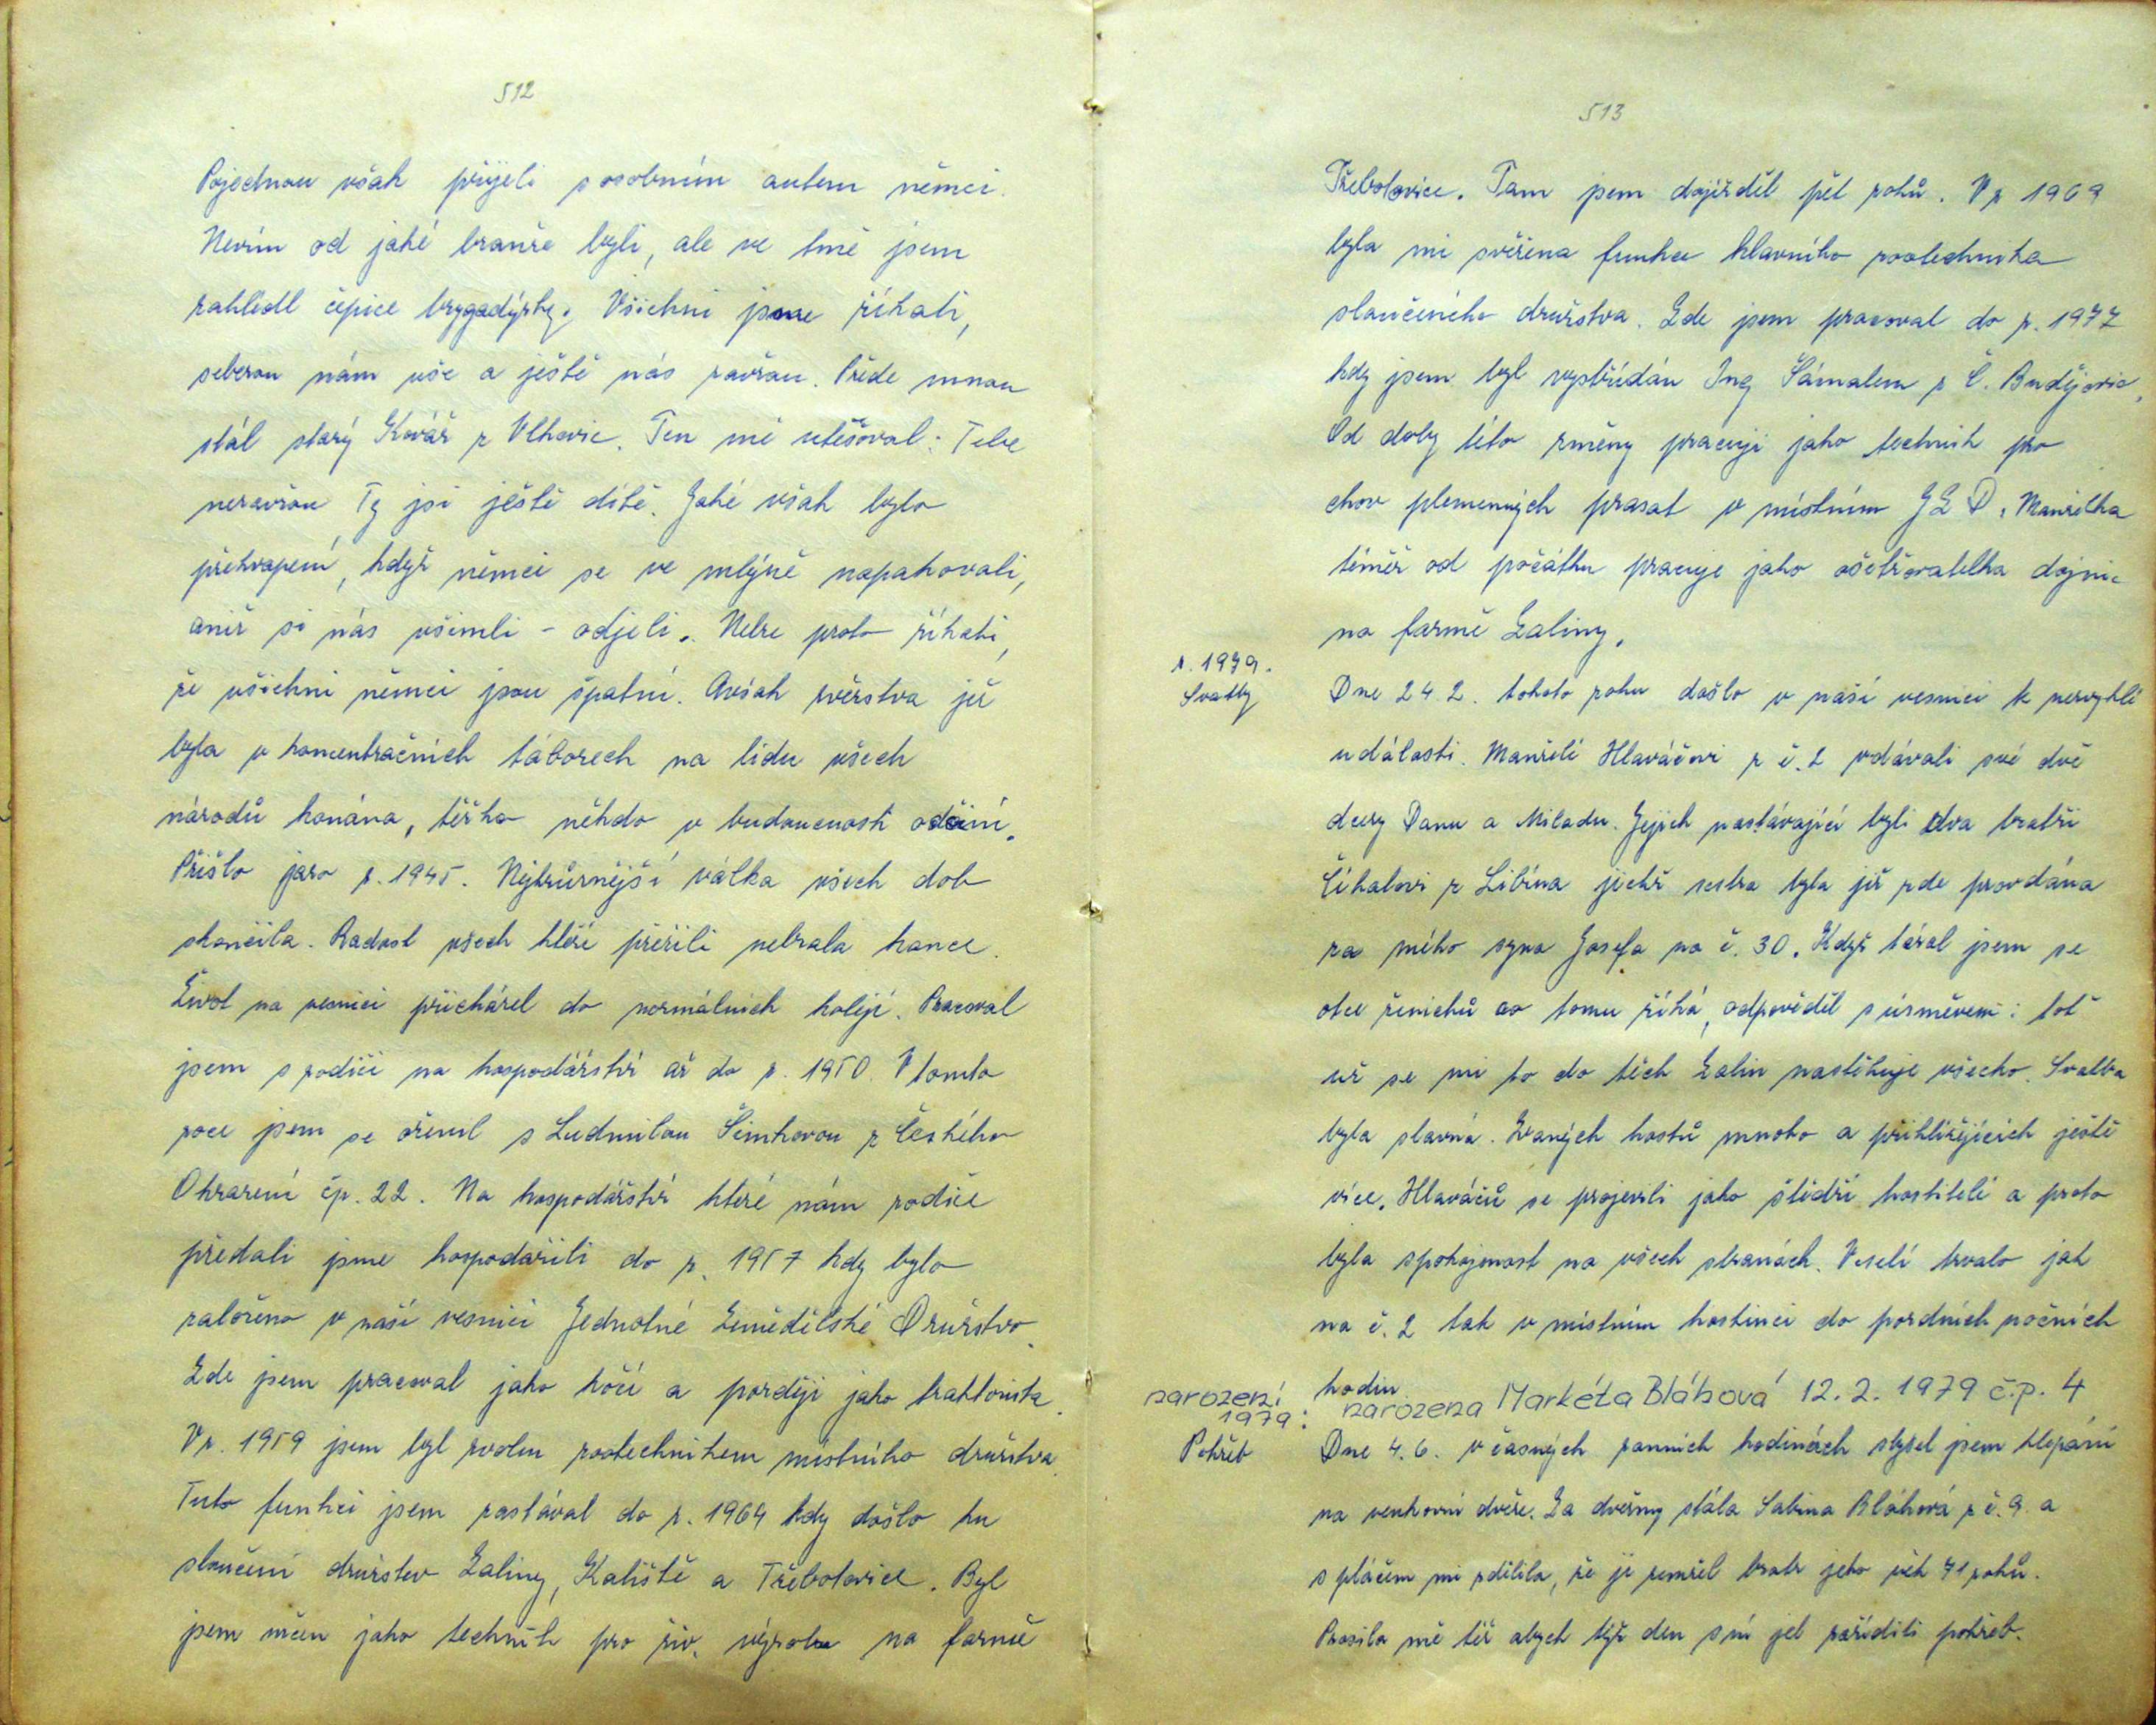 512
Pojednou však přijeli s osobním autem němci.
Nevím od jaké branže byli, ale ve tmě jsem
zahlédl čepice brygadýrky. Všichni jsme říkali,
seberou nám vše a ještě nás zavřou. Přede mnou
stál starý Kovář z Vlkovic. Ten mě utěšoval: Tebe
nezavřou Ty jsi ještě dítě. Jaké však bylo
překvapení, když němci se ve mlýně napakovali,
aniž si nás všimli - odjeli. Nelze proto říkati,
že všichni němci jsou špatní. Avšak zvěrstva jež
byla v koncentračních táborech na lidu všech
národů konána, těžko někdo v budoucnosti odčiní.
Přišlo jaro r. 1945. Nejhrůznější válka všech dob
skončila. Radost všech kteří přežili nebrala konce.
Život na vesnici přicházel do normálních kolejí. Pracoval
jsem s rodiči na hospodářství až do r. 1950. V tomto
roce jsem se oženil s Ludmilou Šimkovou z Českého
Ohrazení čp. 22. Na hospodářství které nám rodiče
předali jsme hospodařili do r. 1957 kdy bylo
založeno v naší vesnici Jednotné Zemědělské Družstvo.
Zde jsem pracoval jako kočí a později jako traktorista.
V r. 1959 jsem byl zvolen zootechnikem místního družstva.
Tuto funkci jsem zastával do r. 1964 kdy došlo ku
sloučení družstev Zaliny, Kaliště a Třebotovice. Byl
jsem určen jako technik pro živ. výrobu na farmě
513
Třebotovice. Tam jsem dojížděl pět roků. V r 1969
byla mi svěřena funkce hlavního zootechnika
sloučeného družstva. Zde jsem pracoval do r. 1977
kdy jsem byl vystřídán Ing Šámalem z Č. Budějovic.
Od doby této změny pracuji jako technik pro
chov plemenných prasat v místním JZD. Manželka
téměř od počátku pracuje jako ošetřovatelka dojnic
na farmě Zaliny.
r. 1979.
Svatby
Dne 24. 2. tohoto roku došlo v naší vesnici k nezvyklé
události. Manželé Hlaváčovi z č. 2 vdávali své dvě
dcery Danu a Miladu. Jejich nastávající byli dva bratři
Číhalovi z Libína jichž sestra byla již zde provdána
za mého syna Josefa na č. 30. Když tázal jsem se
otce ženichů co tomu říká, odpověděl s úsměvem: toť
už se mi to do těch Zalin nastěhuje všecko. Svatba
byla slavná. Zvaných hostů mnoho a přihlížejících ještě
více. Hlaváčů se projevili jako štědří hostitelé a proto
byla spokojenost na všech stranách. Veselí trvalo jak
na č. 2 tak v místním hostinci do pozdních nočních
hodin.
narození
1979:
narozena Markéta Bláhová 12. 2. 1979 č.p. 4
Pohřeb
Dne 4. 6. v časných ranních hodinách slyšel jsem klepání
na venkovní dveře. Za dveřmy stála Sabina Bláhová z č. 9. a
s pláčem mi sdělila, že jí zemřel bratr jeho věk 71 roků.
Prosila mě též abych týž den s ní jel zařídili pohřeb.